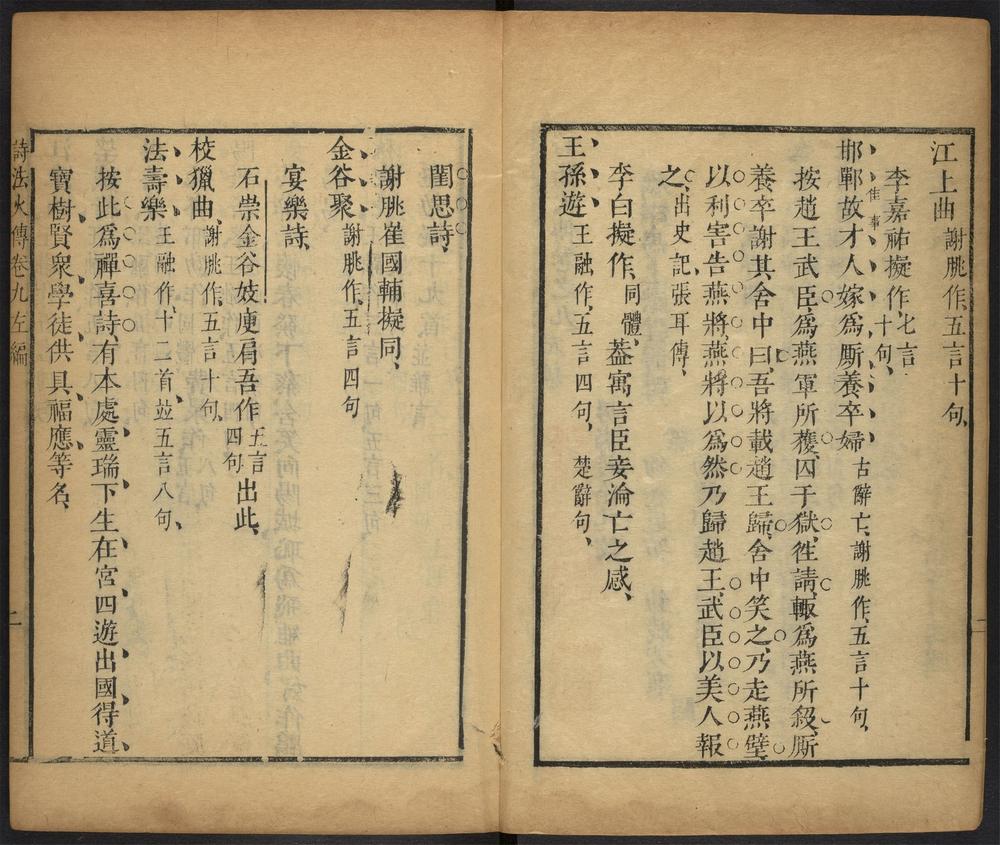 江上曲 謝朓作、五言十句、
李嘉祐擬作、七言十句、
邯鄲故才人嫁爲厮養卒婦 古辭亡、謝朓作、五言十句、
佳事
按趙王武臣、爲燕軍所獲、囚于獄、徃請、輙爲燕所殺、厮
養卒謝其舍中曰、吾將載趙王歸、舍中笑之、乃走燕壁、
以利害告燕將、燕將以爲然、乃歸趙王、武臣以美人報
之、出史記、張耳傳、
李白擬作、同體、葢寓言臣妾淪亡之感、
王孫遊 王融作、五言四句、楚辭句、
閨思詩、
謝朓崔國輔擬同、
金谷聚 謝朓作、五言四句
宴樂詩、
石崇金谷妓庾肩吾作五言四句出此、
校獵曲、謝朓作、五言十句、
法壽樂 王融作、十二首、竝五言八句、
按此爲禪喜詩、有本處靈瑞下生在宮四遊出國得道
寶樹賢衆學徒供具福應等名、
詩法火傳 卷九左編 二